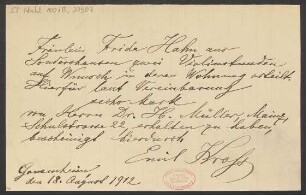 Fräulein Frida Hahn aus
Sondershausen zwei Violinstunden
auf Wunsch in deren Wohnung erteilt.
Hierfür laut Vereinbarung
sechs Mark
von Herrn Dr. H. Müller, Mainz,
Schulstrasse 22 erhalten zu haben,
bescheinigt hierdurch
Emil
den 18. August 1912